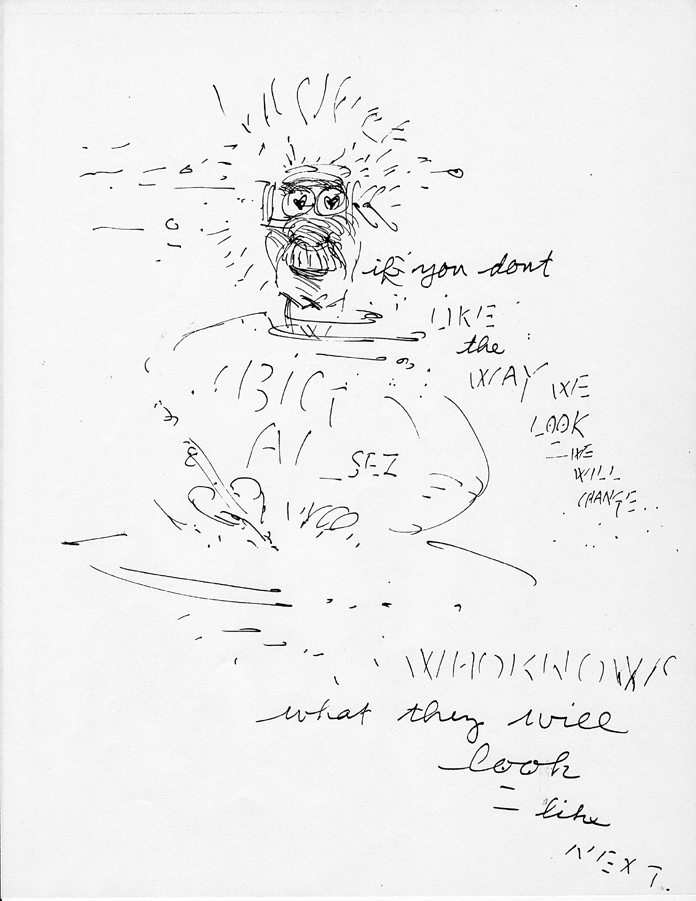 if you dont
LIKE
the
WAY WE
LOOK
WE
WILL
CHANGE
BIG
AL SEZ
WHOKNOWS
what they will
look
like
NEXT.